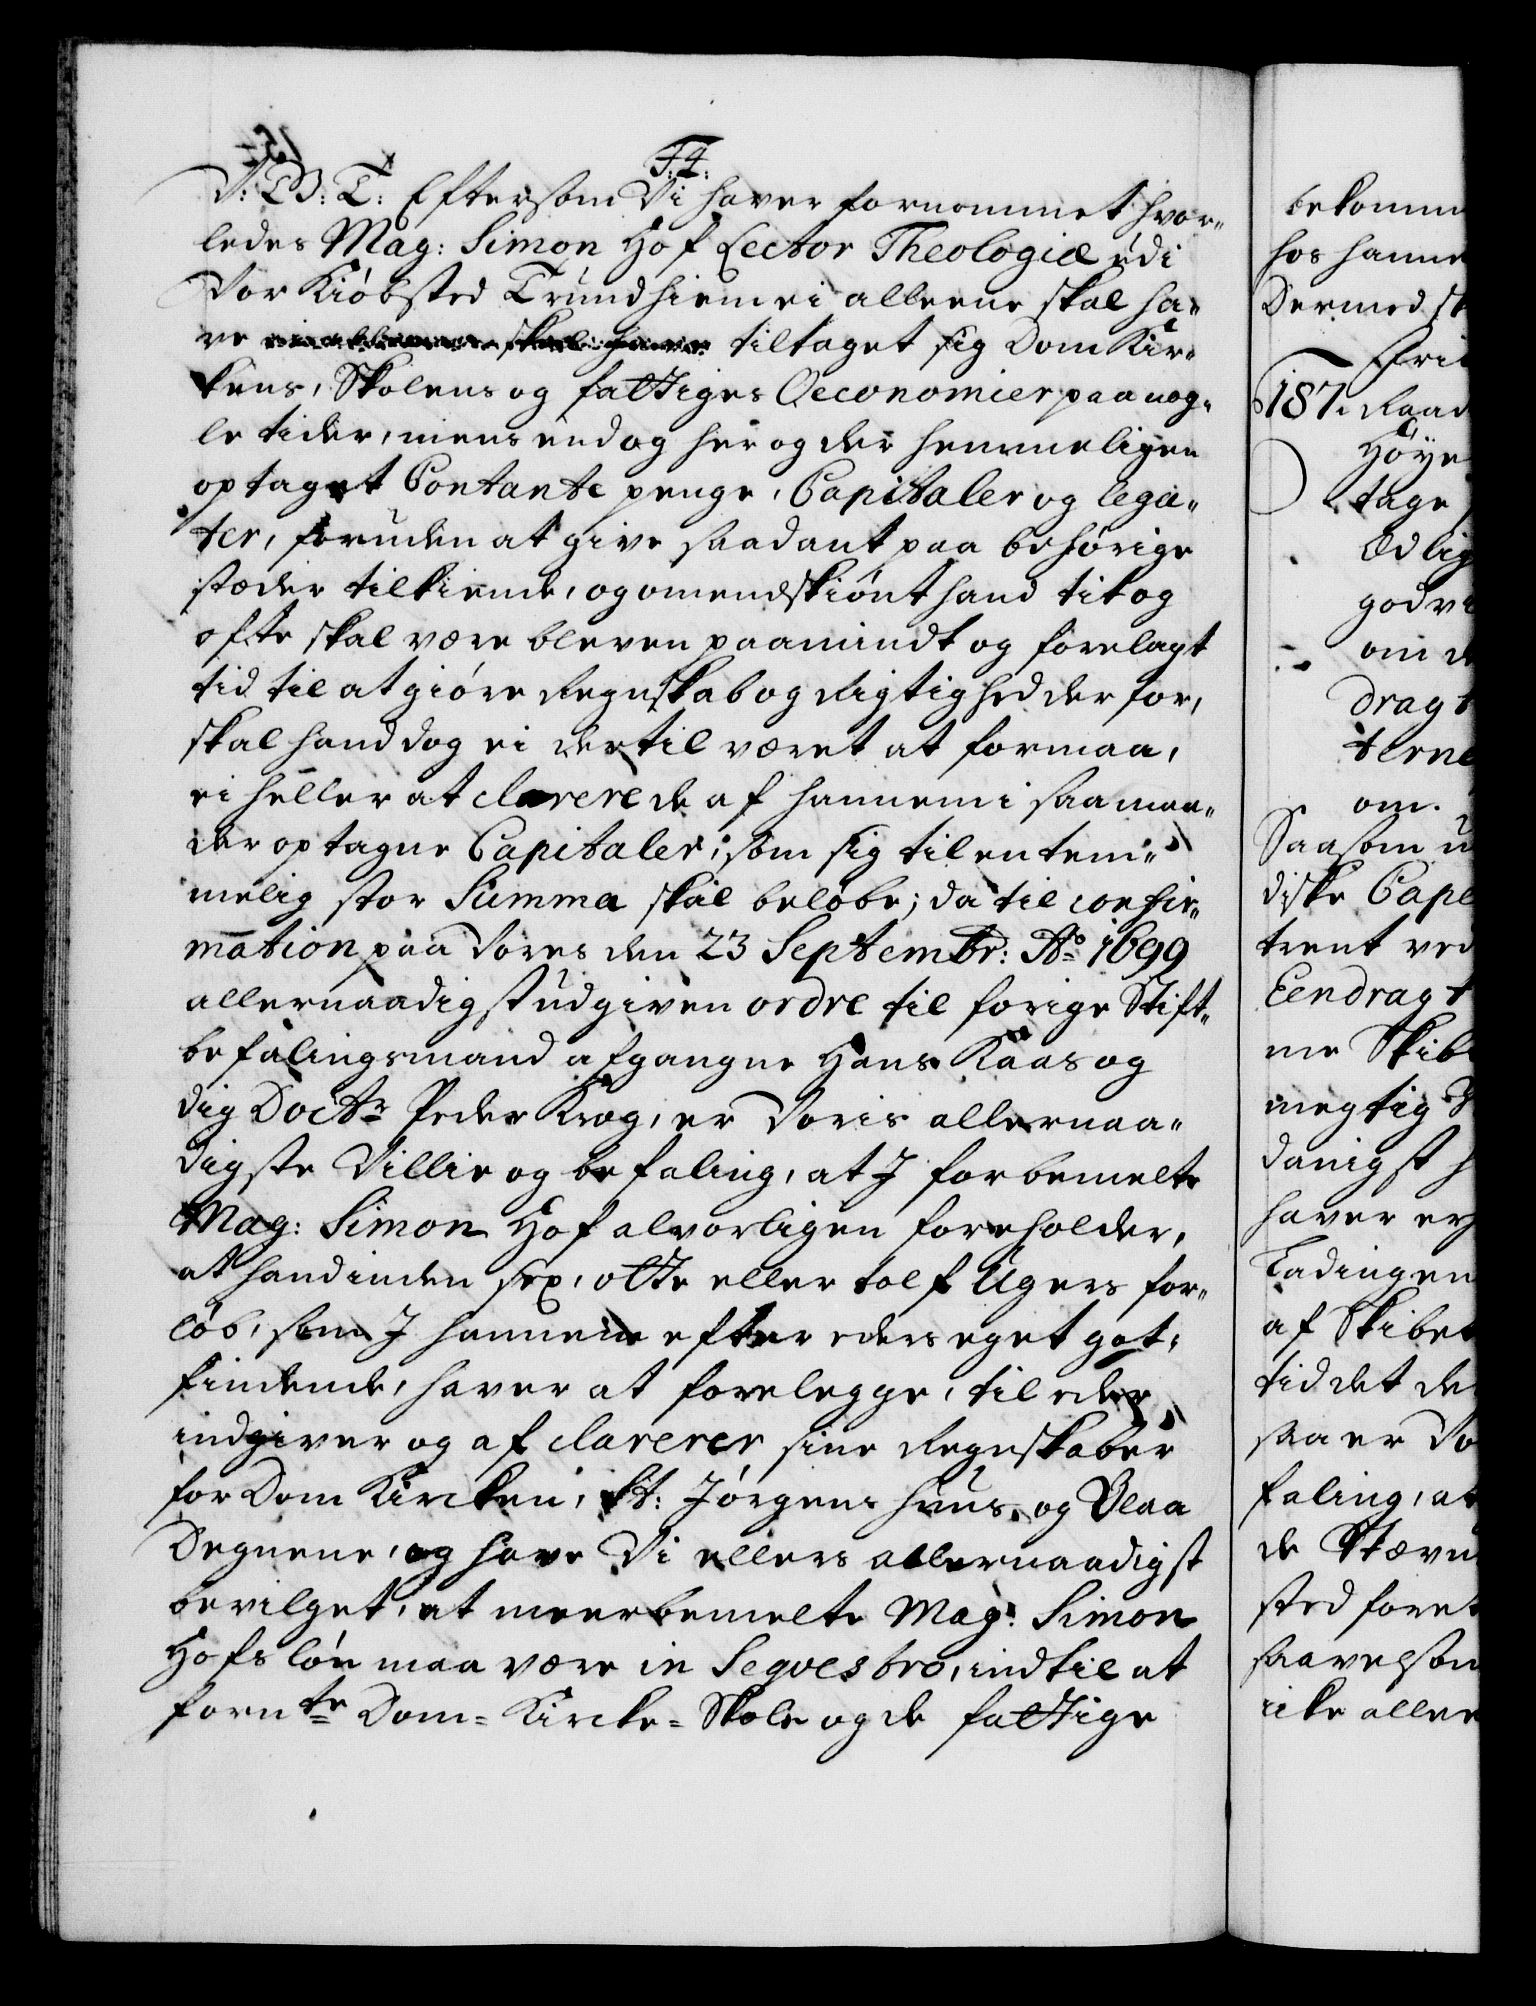 F: 4:
V: G: T: Eftersom Vi haver fornommet hvor-
ledes Mag: Simon Hof Lector Theologiæ udi
Vor Kiöbsted Trundhiem ei alleene skal ha-
ve tiltaget sig Dom Kir-
kens, Skolens og fattiges Oeconomier paa nog-
le tider, mens endog her og der hemmeligen
optaget Contante penge, Capitaler og lega-
ter, foruden at give saadant paa behörige
stæder tilkiende, og omendskiönt hand tit og
ofte skal være bleven paamindt og forelagt
tid til at giöre Regnskab og Rigtighed der for,
skal hand dog ei dertil været at formaa,
ei heller at clarere de af hannem i saa maa-
der optagne Capitaler, som sig til en tem-
melig stor Summa skal belöbe; da til confir-
mation paa Vores den 23 Septembr: Ao 1699
allernaadigst udgiven ordre til forige Stift-
befalingsmand afgangne Hans Kaas og
dig Doctr Peder Krog, er Voris allernaa-
digste Villie og befaling, at J forbemelte
Mag: Simon Hof alvorligen foreholder,
at hand inden sex, otte eller tolf Ugers for-
löb, som J hannem efter eders eget got-
findende, haver at forelegge, til eder
indgiver og af clarerer sine Regnskaber
for Dom Kircken, St: Jörgens huus, og Vlaa
Degnene, og have Vi ellers allernaadigst
bevilget, at meerbemelte Mag: Simon
Hofs lön maa være in Seqvestro, indtil at
fornte Dom- Kircke- Skole og de fattige
bekomm
hos hanne
Dermed st
187. Raad
Höye
tage
Edlig
godvi
om d
dragt
terne
om.
Saasom u
diske Cape
trent ved
Eendragt
me Skib
megtig
danigst h
haver er
Ladingen
af Skibet
tid det de
saa er Vo
faling, at
de Stævn
sted foret
saavelsom
icke allee